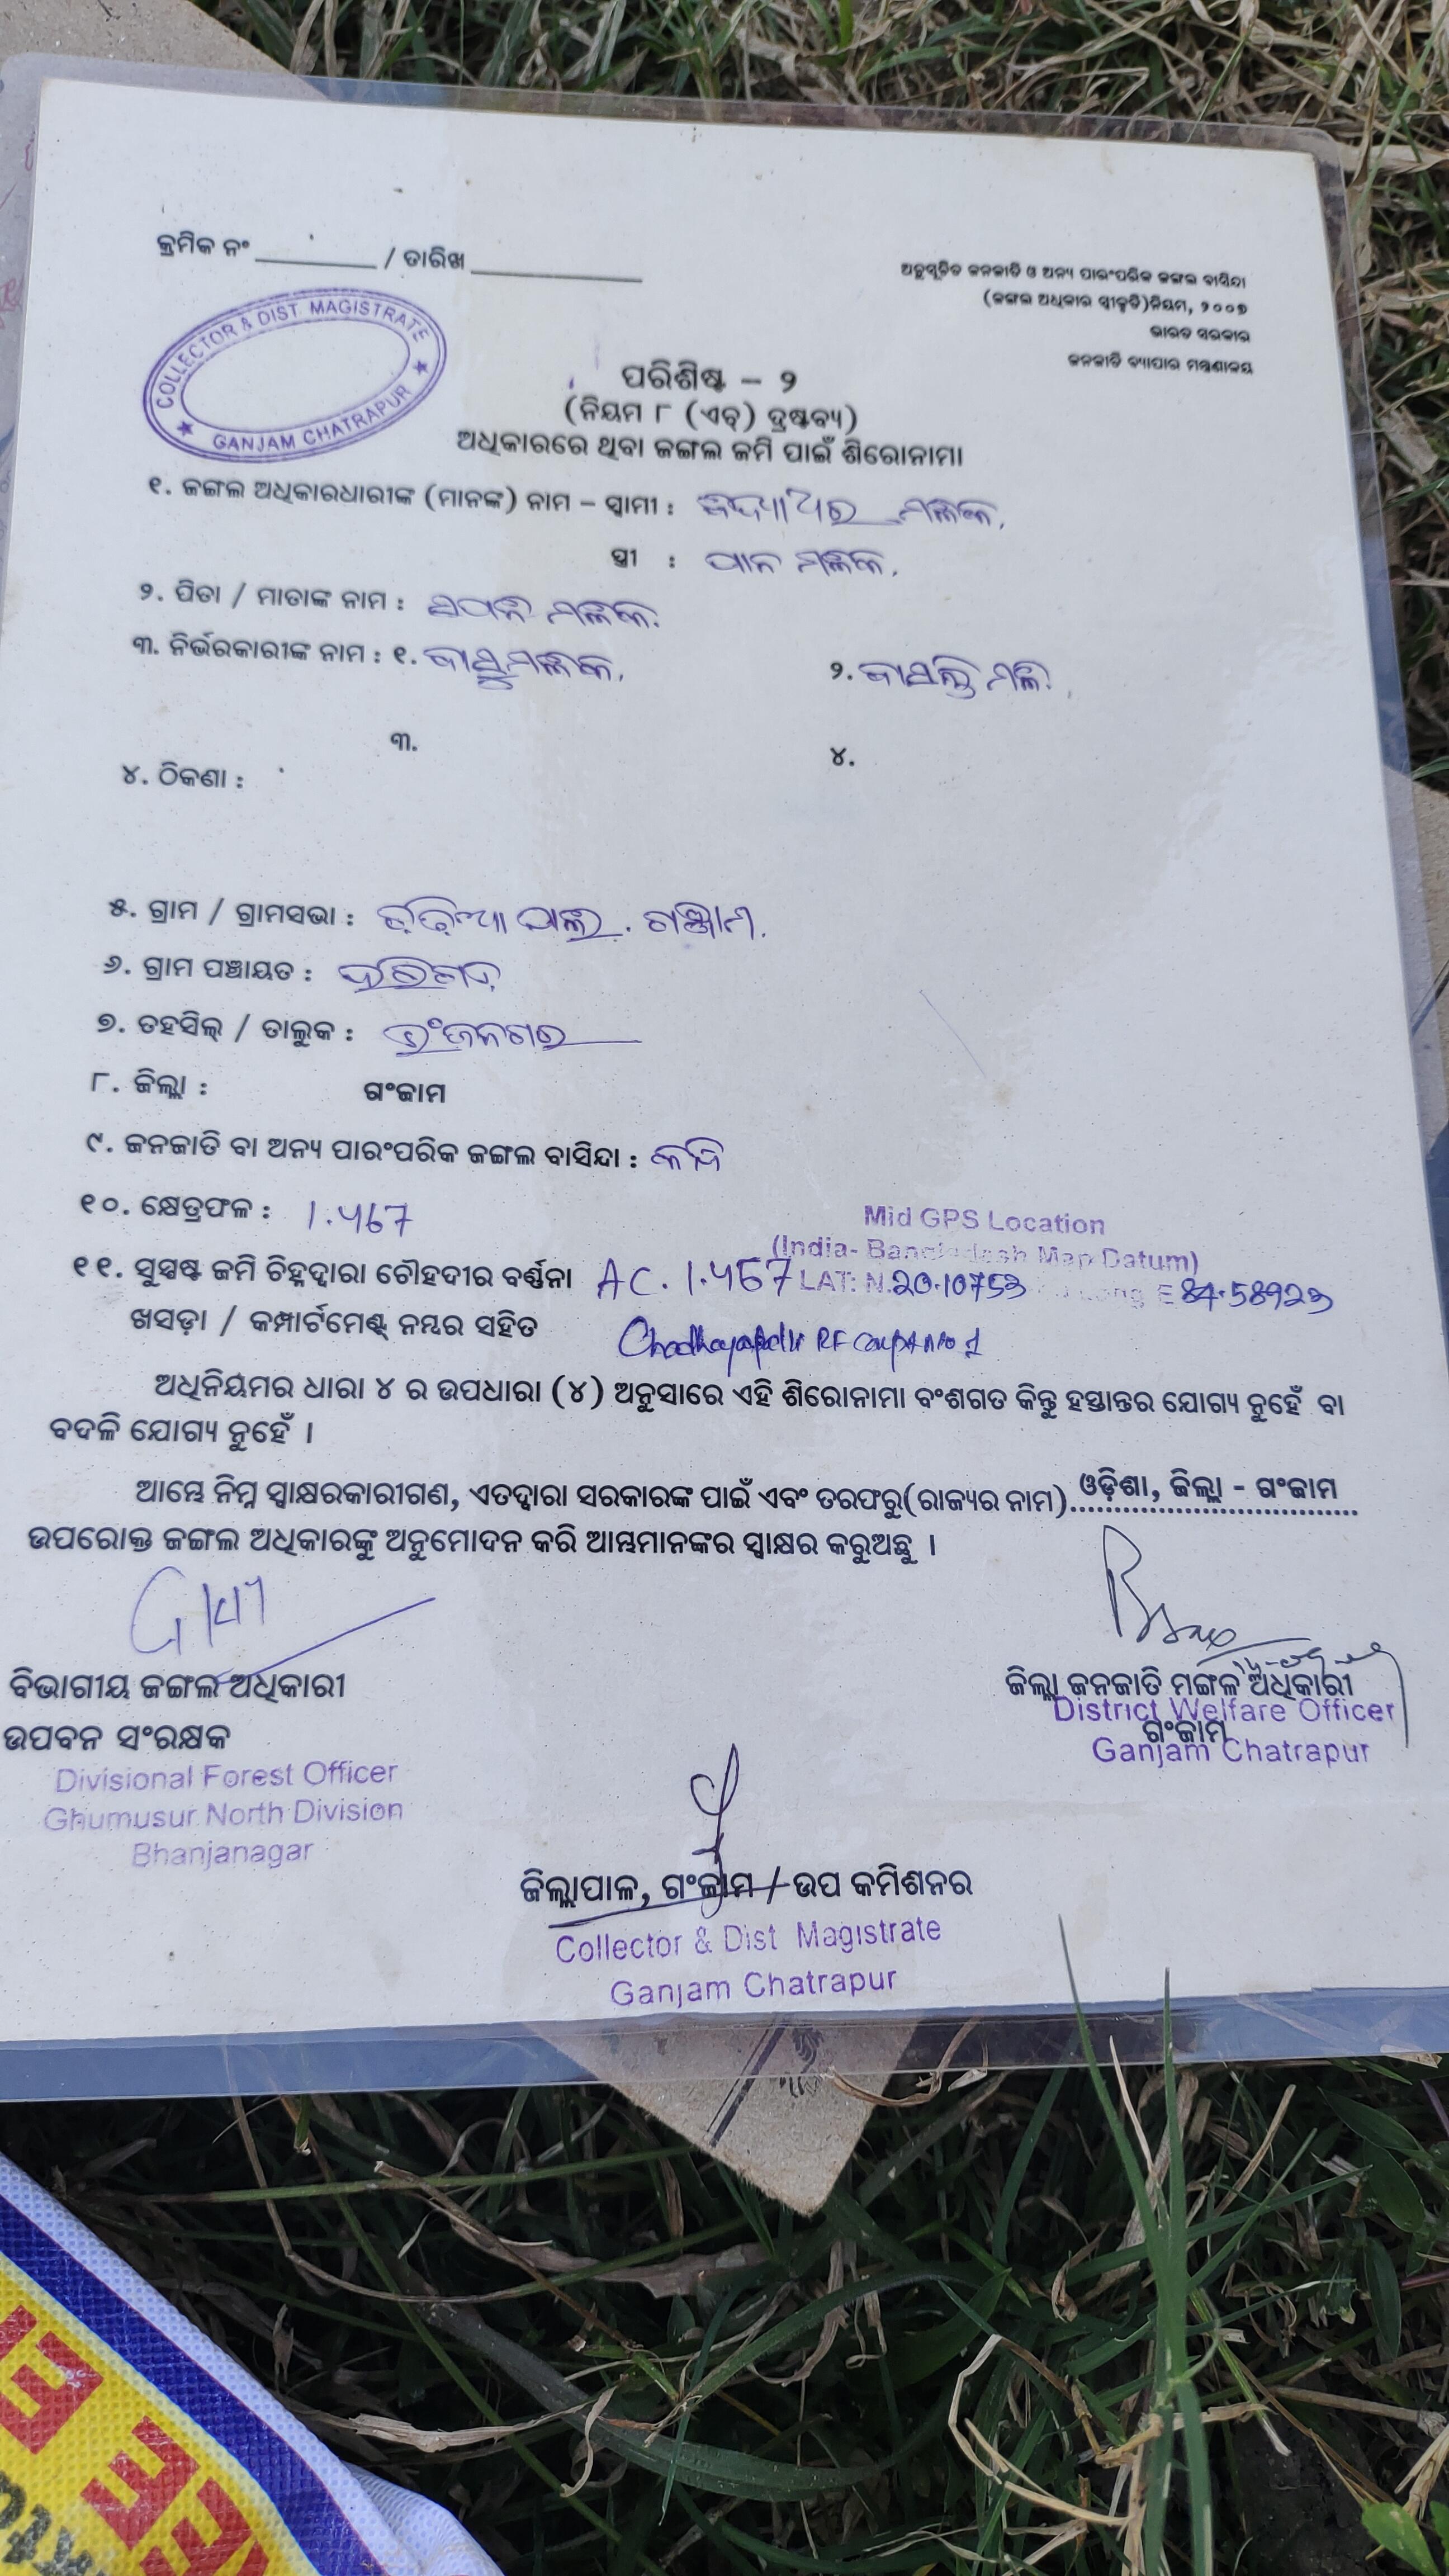 କ୍ରମିକ ନଂ ________ / ତାରିଖ ____________
ଅନୁସୂଚିତ ଜନଜାତି ଓ ଅନ୍ୟ ପାରଂପରିକ ଜଙ୍ଗଲ ବାସିନ୍ଦା
(ଜଙ୍ଗଲ ଅଧିକାର ସ୍ୱୀକୃତି)ନିୟମ, ୨୦୦୭
ଭାରତ ସରକାର
ଜନଜାତି ବ୍ୟାପାର ମନ୍ତ୍ରଣାଳୟ
COLLECTOR & DIST. MAGISTRATE
GANJAM CHATRAPUR
ପରିଶିଷ୍ଟ – ୨
(ନିୟମ ୮ (ଏଚ୍) ଦ୍ରଷ୍ଟବ୍ୟ)
ଅଧିକାରରେ ଥିବା ଜଙ୍ଗଲ ଜମି ପାଇଁ ଶିରୋନାମା
୧. ଜଙ୍ଗଲ ଅଧିକାରଧାରୀଙ୍କ (ମାନଙ୍କ) ନାମ – ସ୍ୱାମୀ : ମଳିକ
ସ୍ତ୍ରୀ : ପାନ ମଳିକ
୨. ପିତା / ମାତାଙ୍କ ନାମ : ମଳିକ
୩. ନିର୍ଭରକାରୀଙ୍କ ନାମ : ୧. ମଳିକ ୨.
୩. ୪.
୪. ଠିକଣା :
୫. ଗ୍ରାମ / ଗ୍ରାମସଭା : ଗଞ୍ଜାମ
୬. ଗ୍ରାମ ପଞ୍ଚାୟତ :
୭. ତହସିଲ୍ / ତାଲୁକ :
୮. ଜିଲ୍ଲା : ଗଂଜାମ
୯. ଜନଜାତି ବା ଅନ୍ୟ ପାରଂପରିକ ଜଙ୍ଗଲ ବାସିନ୍ଦା :
୧୦. କ୍ଷେତ୍ରଫଳ :
Mid GPS Location
(India- Bangladesh Map Datum)
୧୧. ସୁସ୍ପଷ୍ଟ ଜମି ଚିହ୍ନଦ୍ୱାରା ଚୌହଦୀର ବର୍ଣ୍ଣନା AC. LAT: N.20.10753 Long E 84.58923
ଖସଡ଼ା / କମ୍ପାର୍ଟମେଣ୍ଟ ନମ୍ବର ସହିତ RF
ଅଧିନିୟମର ଧାରା ୪ ର ଉପଧାରା (୪) ଅନୁସାରେ ଏହି ଶିରୋନାମା ବଂଶଗତ କିନ୍ତୁ ହସ୍ତାନ୍ତର ଯୋଗ୍ୟ ନୁହେଁ ବା
ବଦଳି ଯୋଗ୍ୟ ନୁହେଁ ।
ଆମ୍ଭେ ନିମ୍ନ ସ୍ୱାକ୍ଷରକାରୀଗଣ, ଏତଦ୍ୱାରା ସରକାରଙ୍କ ପାଇଁ ଏବଂ ତରଫରୁ(ରାଜ୍ୟର ନାମ) ଓଡ଼ିଶା, ଜିଲ୍ଲା - ଗଂଜାମ
ଉପରୋକ୍ତ ଜଙ୍ଗଲ ଅଧିକାରଙ୍କୁ ଅନୁମୋଦନ କରି ଆମ୍ଭମାନଙ୍କର ସ୍ୱାକ୍ଷର କରୁଅଛୁ ।
ବିଭାଗୀୟ ଜଙ୍ଗଲ ଅଧିକାରୀ
ଉପବନ ସଂରକ୍ଷକ
Divisional Forest Officer
Ghumusur North Division
Bhanjanagar
ଜିଲ୍ଲା ଜନଜାତି ମଙ୍ଗଳ ଅଧିକାରୀ
District Welfare Officer
ଗଂଜାମ
Ganjam Chatrapur
ଜିଲ୍ଲାପାଳ, ଗଂଜାମ / ଉପ କମିଶନର
Collector & Dist Magistrate
Ganjam Chatrapur